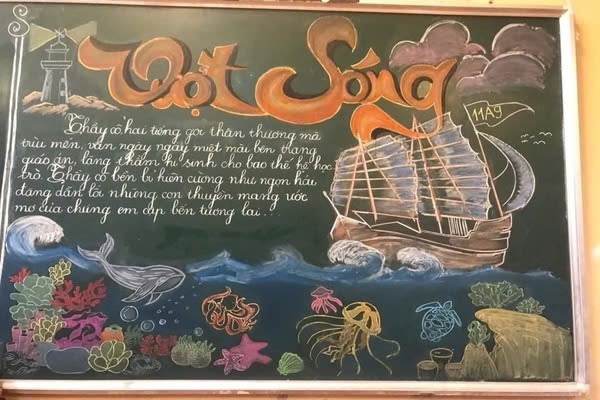 Vượt Sóng
11A9
Thầy cô hai tiếng gọi thân thương mà
trìu mến, vẫn ngày ngày miệt mài bên trang
giáo án, lặng thầm hi sinh cho bao thế hệ học
trò. Thầy cô bền bỉ kiên cường như ngọn hải
đăng dẫn lối những con thuyền mang ước
mơ của chúng em cập bến tương lai...